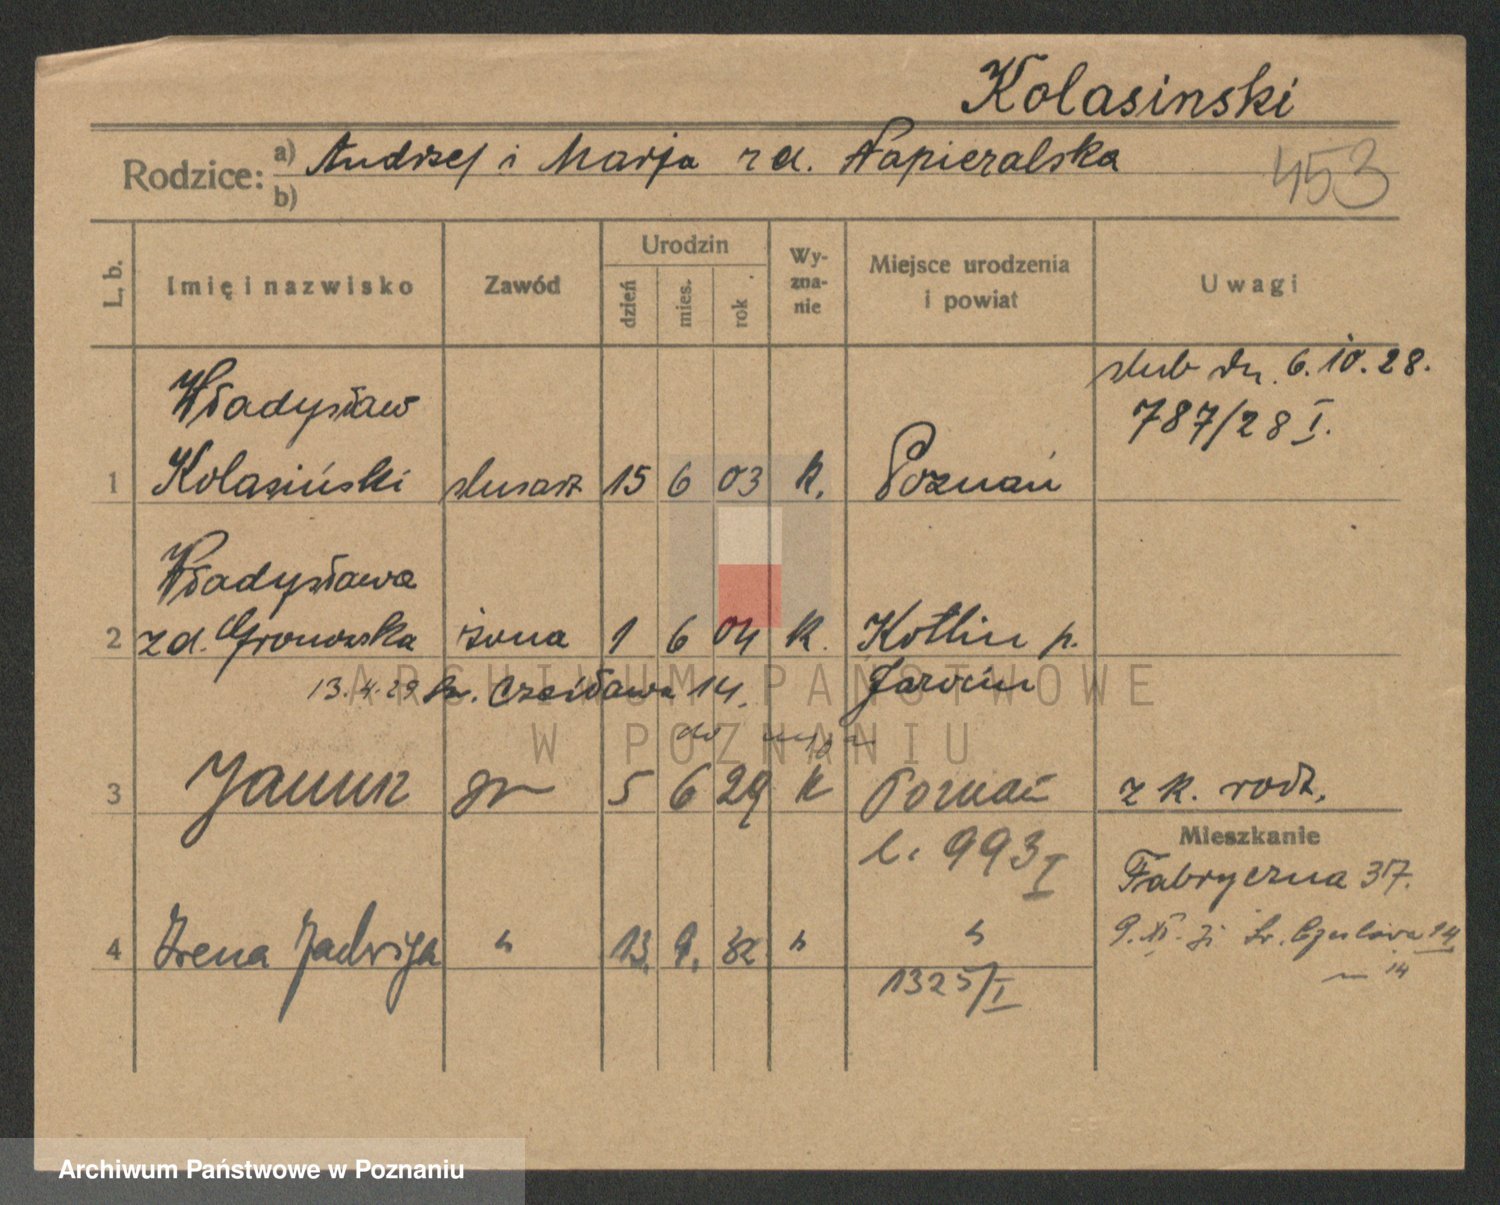 Kolasinski
Rodzice: a) Andrzej i Marja z d. Napieralska
b)
453
L. b.
Imię i nazwisko
Zawód
Urodzin
dzień
mies.
rok
Wy-
zna-
nie
Miejsce urodzenia
i powiat
Uwagi
ślub dn. 6.10.28.
787/28 I.
Władysław
1 Kolasiński ślusarz 15 6 03 k. Poznań
Władysława
2 z d. Gronowska żona 1 6 04 k. Kotlin p.
Jarocin
13.4.29 św. Czesława 14.
ARCHIWUM PAŃSTWOWE
W POZNANIU
3 Janusz 5 6 29 k Poznań z k. rodz.
l. 993 I
Mieszkanie
Fabryczna 37.
4 Irena Jadwiga " 13. 9. 32 " "
1325/I
9. XI. św. Czesława 14
m 14
Archiwum Państwowe w Poznaniu